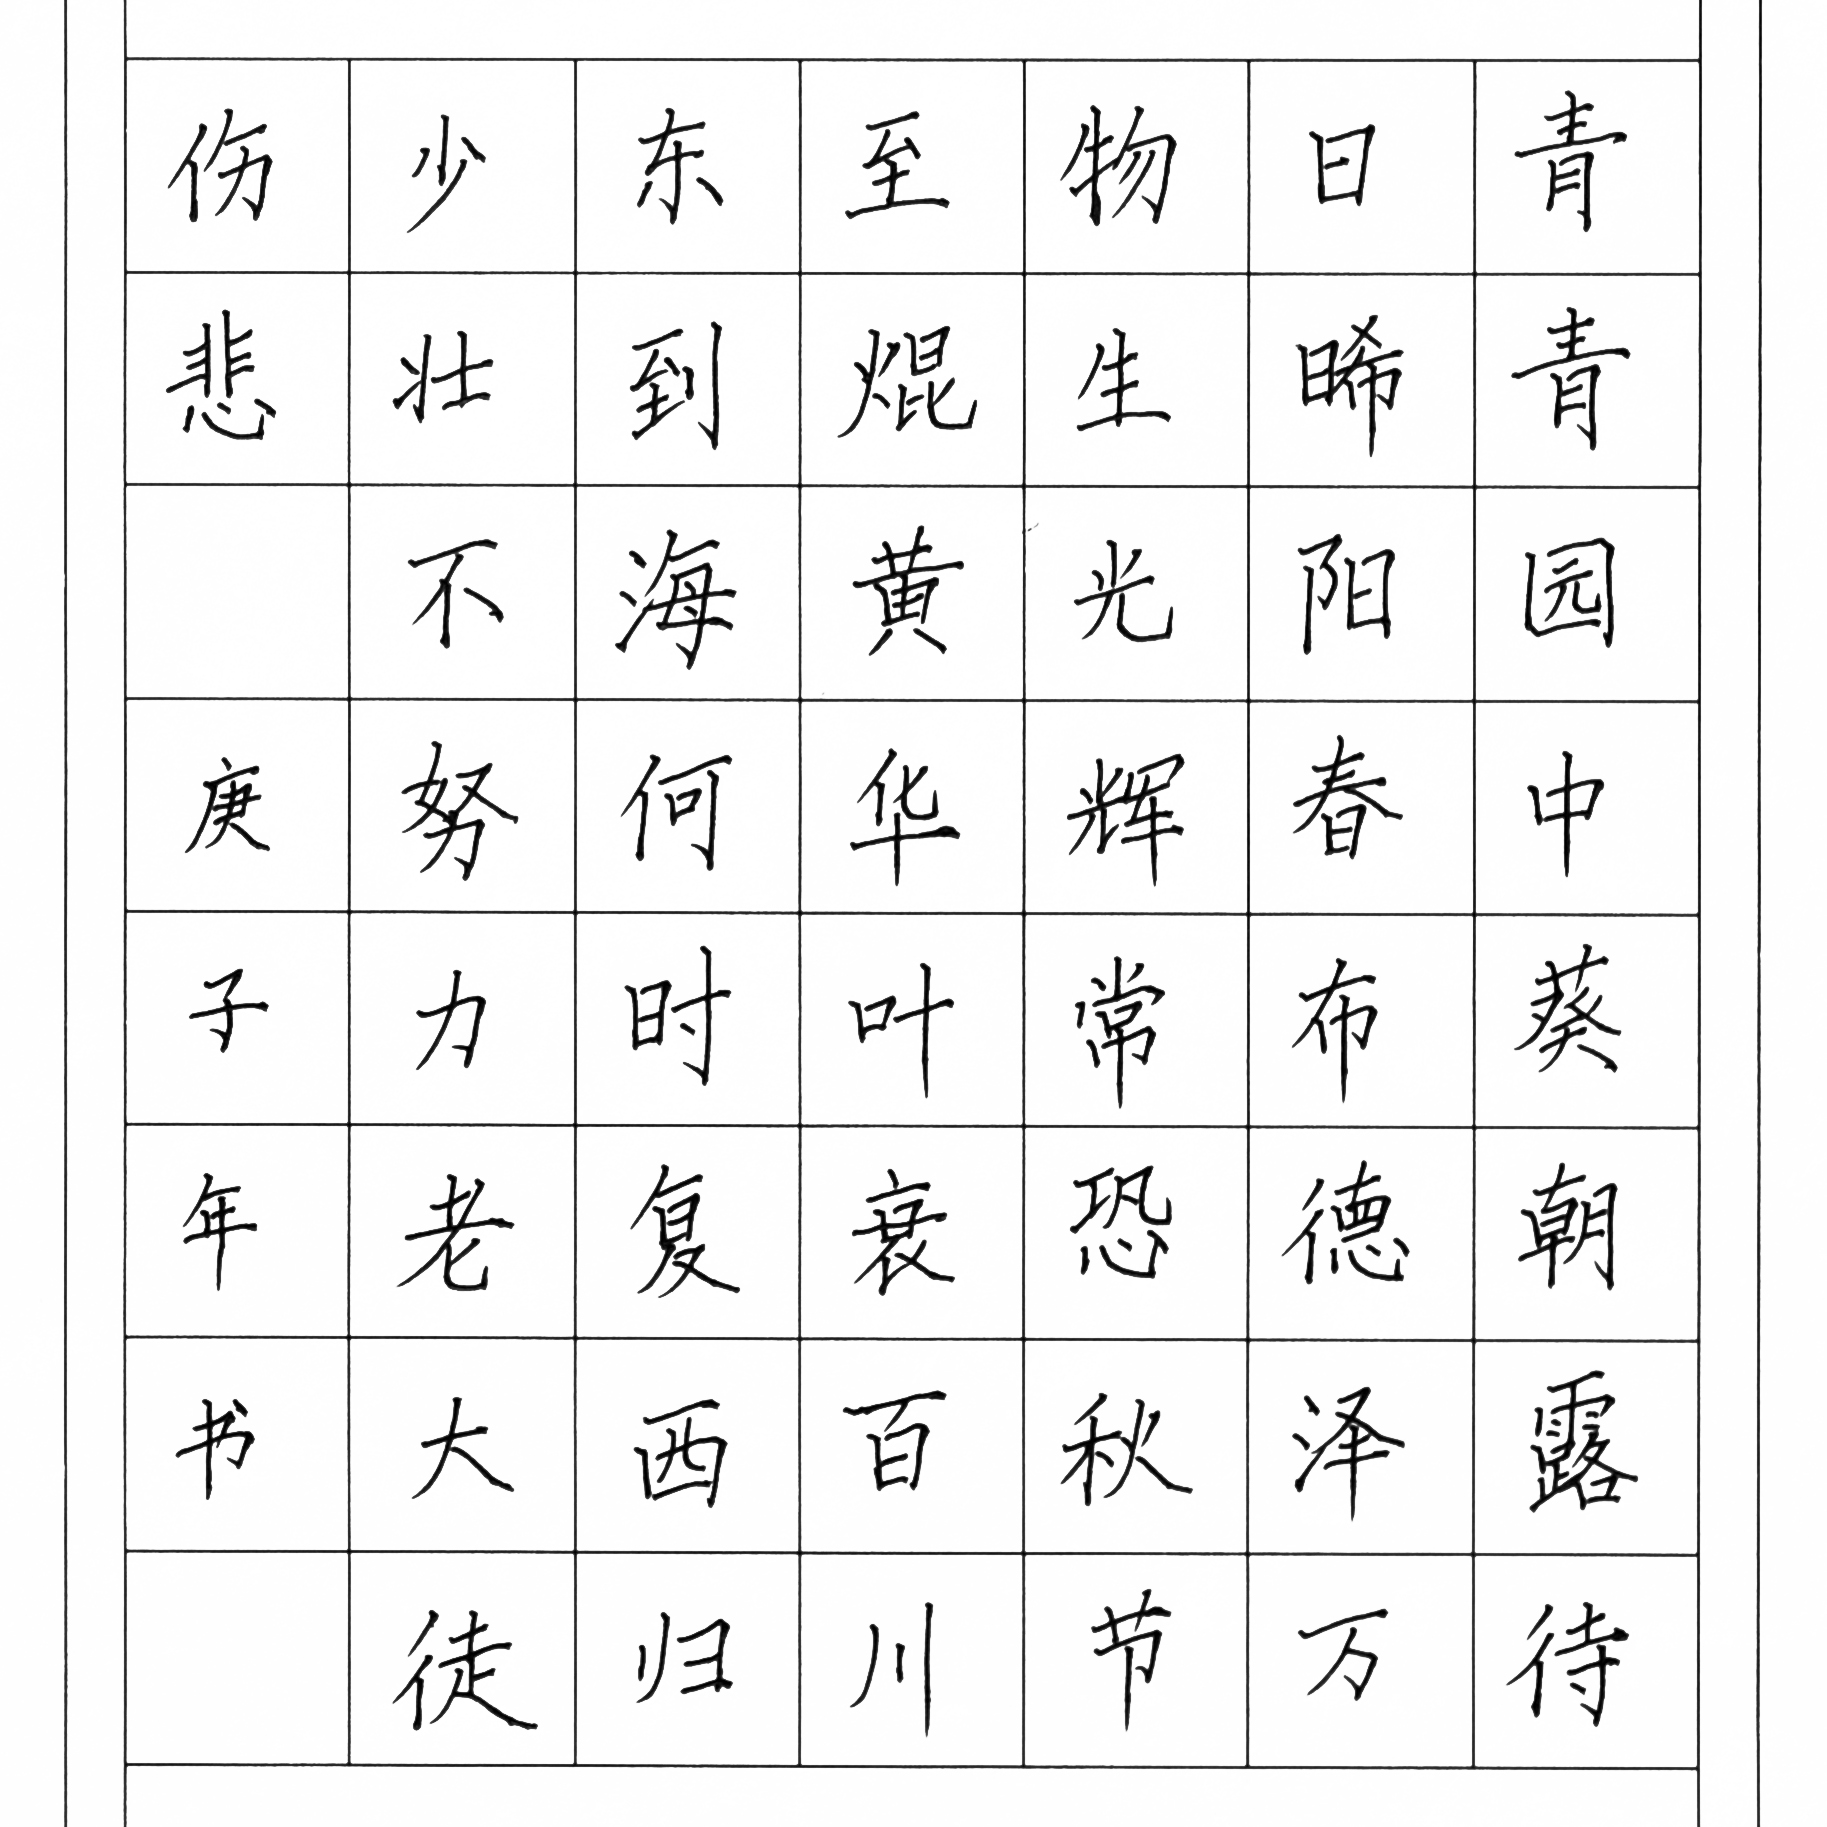 青青园中葵朝露待
日晞阳春布德泽万
物生光辉常恐秋节
至焜黄华叶衰百川
东到海何时复西归
少壮不努力老大徒
伤悲
庚子年书